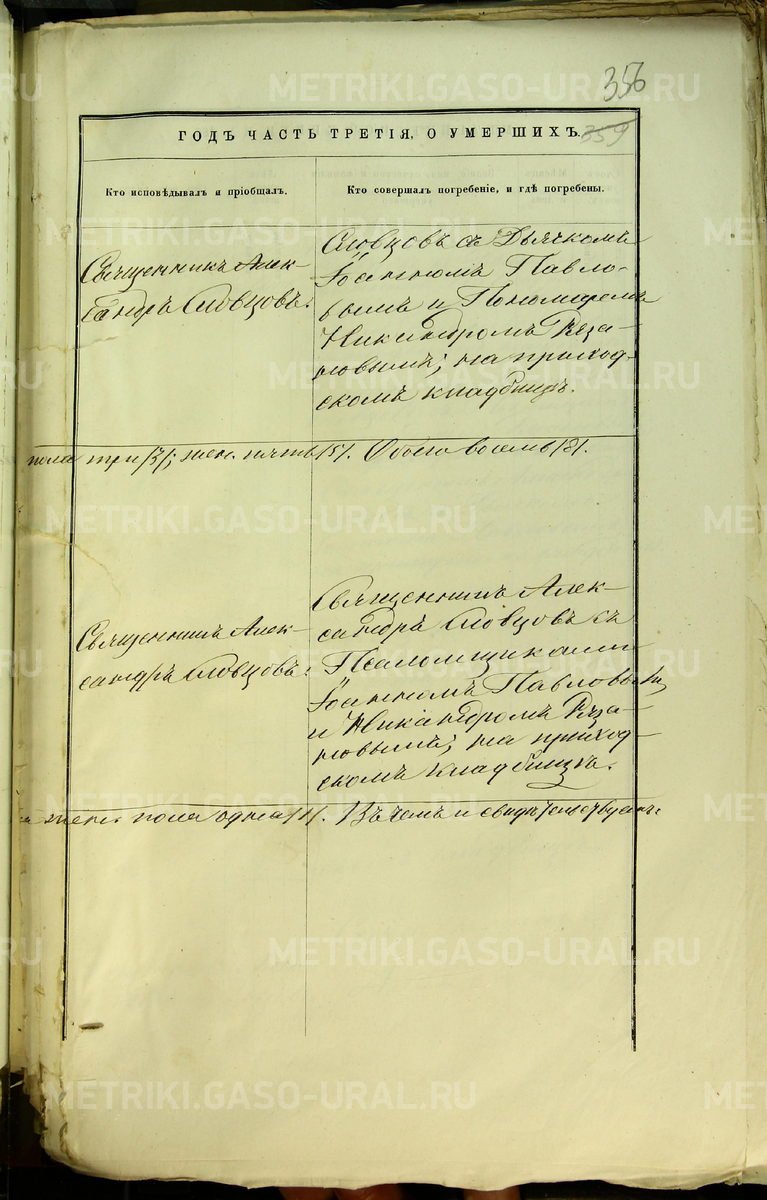 356
ГОДЪ ЧАСТЬ ТРЕТІЯ, О УМЕРШИХЪ.
359
Кто исповѣдывалъ и пріобщалъ.
Кто совершалъ погребеніе, и гдѣ погребены.
Священникъ Алек-
сандръ Словцовъ.
Словцовъ съ Дьячкомъ
Іоанномъ Павло-
вымъ и Пономаремъ
Никандромъ Ряза-
новымъ; на приход-
скомъ кладбищѣ.
пола три /3/; жен. пять /5/. Обоего восемь /8/.
Священникъ Алек-
сандръ Словцовъ.
Священникъ Алек-
сандръ Словцовъ съ
Псаломщиками
Іоанномъ Павловымъ,
и Никандромъ Ряза-
новымъ; на приход-
скомъ кладбищѣ.
жен. пола одна /1/. Въ чемъ и свидѣтельствуемъ:
METRIKI.GASO-URAL.RU